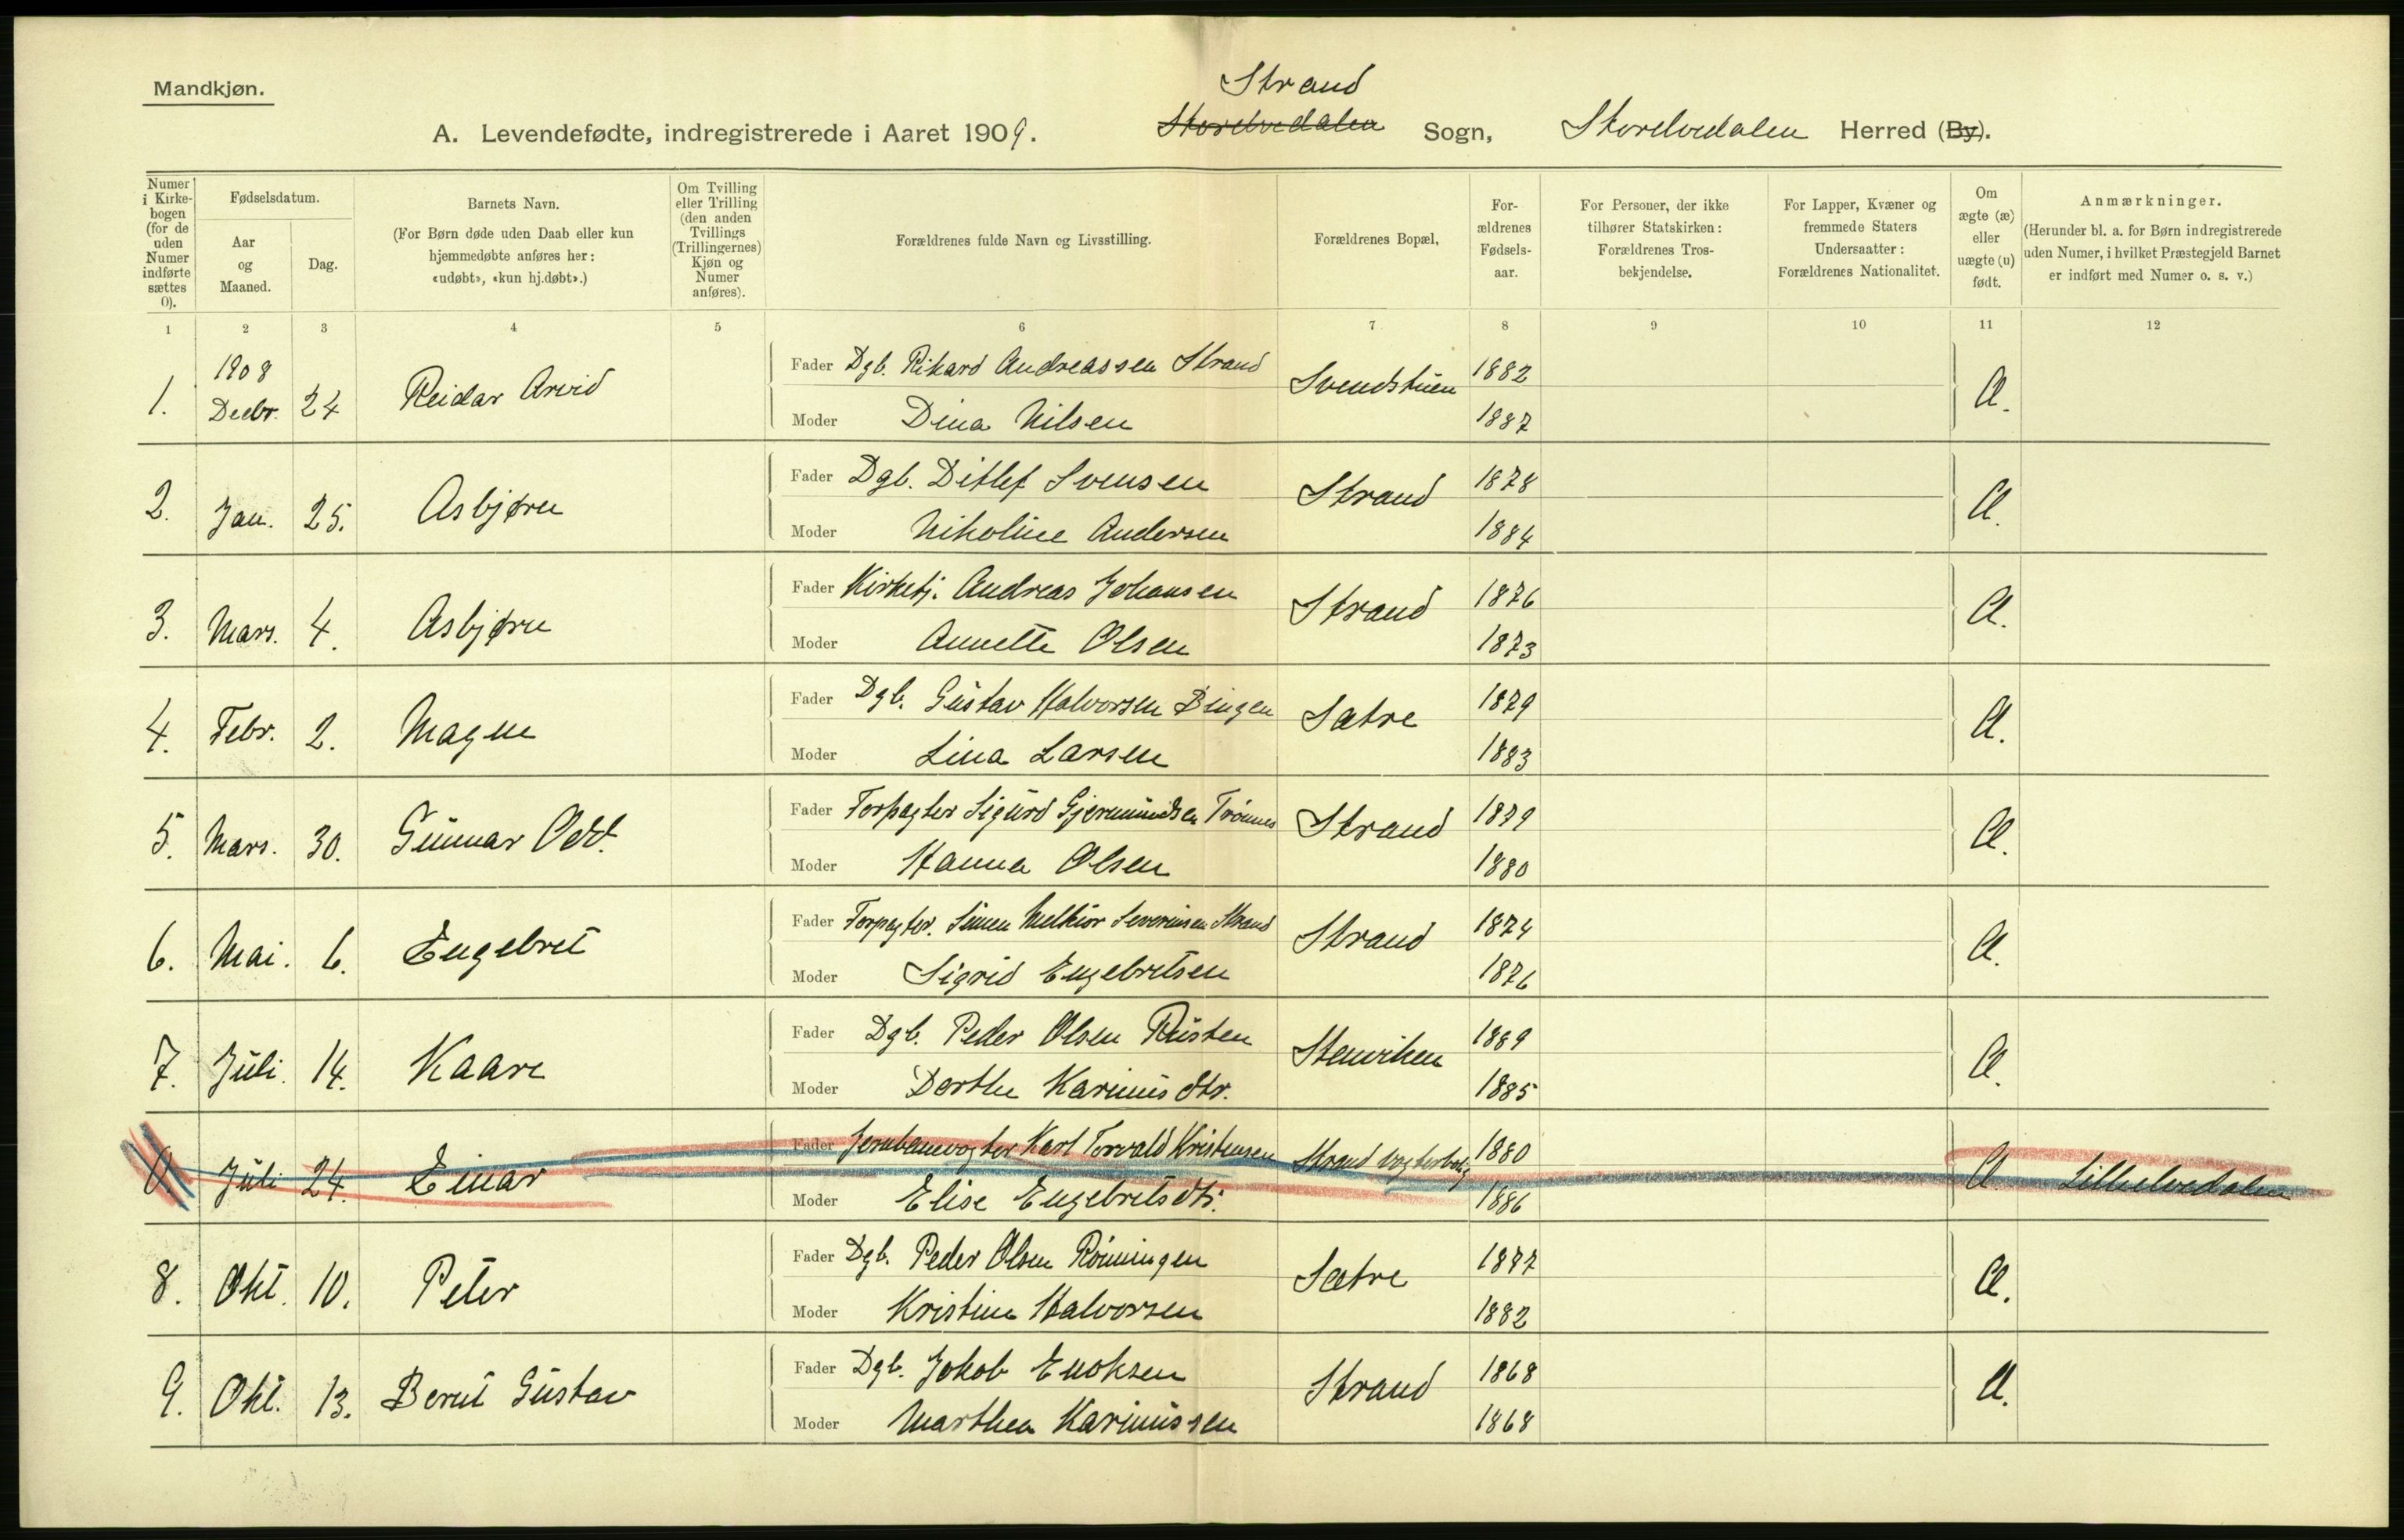 Mandkjøn.
Strand
A. Levendefødte, indregistrerede i Aaret 1909. Storelvedalen Sogn, Storelvedalen Herred (By).
Numer i Kirkebogen (for de uden Numer indførte sættes 0).
Fødselsdatum.
Aar og Maaned.
Dag.
Barnets Navn.
(For Børn døde uden Daab eller kun hjemmedøbte anføres her: «udøbt», «kun hj.døbt».)
Om Tvilling eller Trilling (den anden Tvillings (Trillingernes) Kjøn og Numer anføres).
Forældrenes fulde Navn og Livsstilling.
Forældrenes Bopæl,
For-ældrenes Fødsels-aar.
For Personer, der ikke tilhører Statskirken: Forældrenes Tros-bekjendelse.
For Lapper, Kvæner og fremmede Staters Undersaatter: Forældrenes Nationalitet.
Om ægte (æ) eller uægte (u) født.
Anmærkninger.
(Herunder bl. a. for Børn indregistrerede uden Numer, i hvilket Præstegjeld Barnet er indført med Numer o. s. v.)
1 2 3 4 5 6 7 8 9 10 11 12
1. 1908 Decbr. 24 Reidar Arvid Fader Dgb. Rikard Andreassen Strand Svendstuen 1882 Æ.
Moder Dina Nilsen 1887
2. Jan. 25. Asbjørn Fader Dgb. Ditlef Svensen Strand 1878 Æ.
Moder Nikoline Andersen 1884
3. Mars. 4. Asbjørn Fader Kirketj. Andreas Johansen Strand 1876 Æ.
Moder Annette Olsen 1873
4. Febr. 2. Magne Fader Dgb. Gustav Halvorsen Bingen Sætre 1879 Æ.
Moder Lina Larsen 1883
5. Mars. 30. Gunnar Odd. Fader Forpagter Sigurd Gjermundsen Trønnes Strand 1879 Æ.
Moder Hanna Olsen 1880
6. Mai. 6. Engebret Fader Forpagter. Simen Melkior Severinsen Strand Strand 1874 Æ.
Moder Sigrid Engebretsen 1876
7. Juli. 14. Kaare Fader Dgb. Peder Olsen Rusten Stenviken 1889 Æ.
Moder Dorthe Karinus dtr. 1885
0. Juli 24. Einar Fader Jernbanevogter Karl Torvald Kristensen Strand vogterbolig 1880 Æ. Lilleelvedalen
Moder Elise Engebrets dtr. 1886
8. Okt. 10. Peter Fader Dgb. Peder Olsen Rønningen Sætre 1877 Æ.
Moder Kristine Halvorsen 1882
9. Okt. 13. Bernt Gustav Fader Dgb. Jakob Enoksen Strand 1868 Æ.
Moder Marthea Karinussen 1868